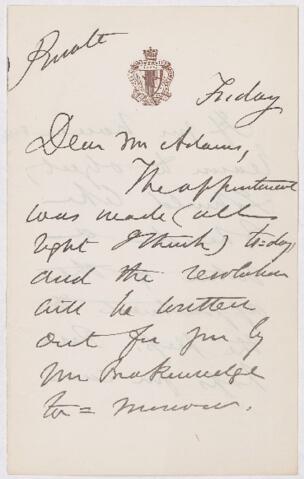 Private
Friday
Dear Mr Adams,
The appointment
was made (all
right I think) to=day
and the resolution
will be written
out for you by
Mr Brakenridge
to=morrow.